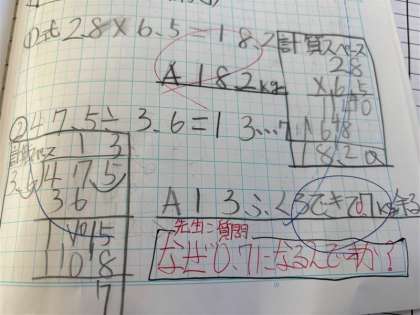 ①式 2.8×6.5=18.2
A 18.2kg
計算スペース
2.8
×6.5
140
168
18.20
②47.5÷3.6=13…7
計算スペース
13
3.6)47.5
36
115
108
7
A 13ふくろできて0.7kg余る
先生に質問
なぜ0.7になるんですか？